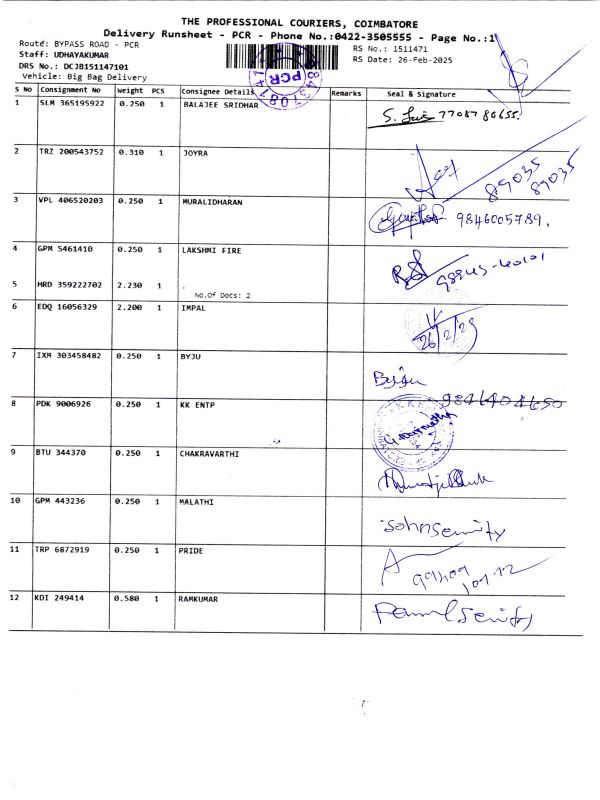 THE PROFESSIONAL COURIERS, COIMBATORE
Delivery Runsheet - PCR - Phone No.:0422-3505555 - Page No.:1
Route: BYPASS ROAD - PCR
RS No.: 1511471
Staff: UDHAYAKUMAR
RS Date: 26-Feb-2025
DRS No.: DCJB151147101
Vehicle: Big Bag Delivery
PCR
S No Consignment No Weight PCS Consignee Details Remarks Seal & Signature
1 SLM 365195922 0.250 1 BALAJEE SRIDHAR
7708780655.
2 TRZ 200543752 0.310 1 JOYRA
89035
89035
3 VPL 406520203 0.250 1 MURALIDHARAN
9846005789.
4 GPM 5461410 0.250 1 LAKSHMI FIRE
5 HRD 359222702 2.230 1 .
No.Of Docs: 2
6 EDQ 16056329 2.200 1 IMPAL
26/2/25
7 IXM 303458482 0.250 1 BYJU
Byju
9846404650
8 PDK 9006926 0.250 1 KK ENTP
9 BTU 344370 0.250 1 CHAKRAVARTHI
10 GPM 443236 0.250 1 MALATHI
11 TRP 6872919 0.250 1 PRIDE
12 KDI 249414 0.580 1 RAMKUMAR